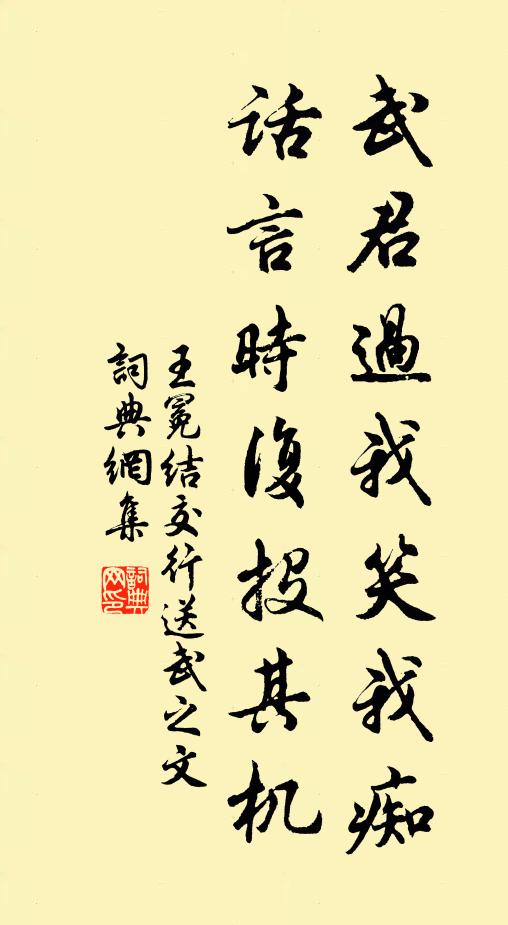 武君過我笑我痴
话言時復投其机
王冕结交行送武之文
詞典網集
詞典網印